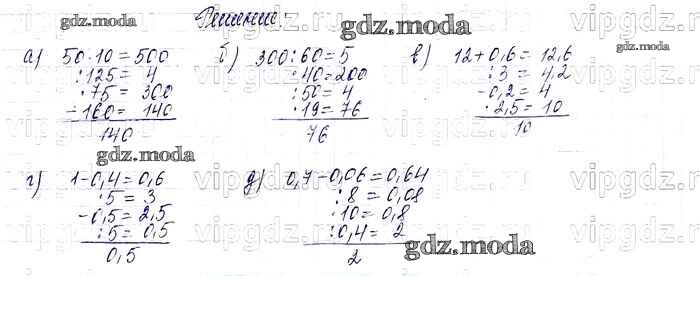 Решение:
а) 50·10=500
:125= 4
·75= 300
-160= 140
140
б) 300:60=5
·40=200
:50=4
·19=76
76
в) 12+0,6=12,6
:3= 4,2
-0,2=4
·2,5=10
10
г) 1-0,4=0,6
:5=3
-0,5=2,5
:5=0,5
0,5
д) 0,7-0,06=0,64
:8=0,08
·10=0,8
:0,4=2
2
gdz.moda
gdz.moda
gdz.moda
gdz.moda
gdz.moda
gdz.moda